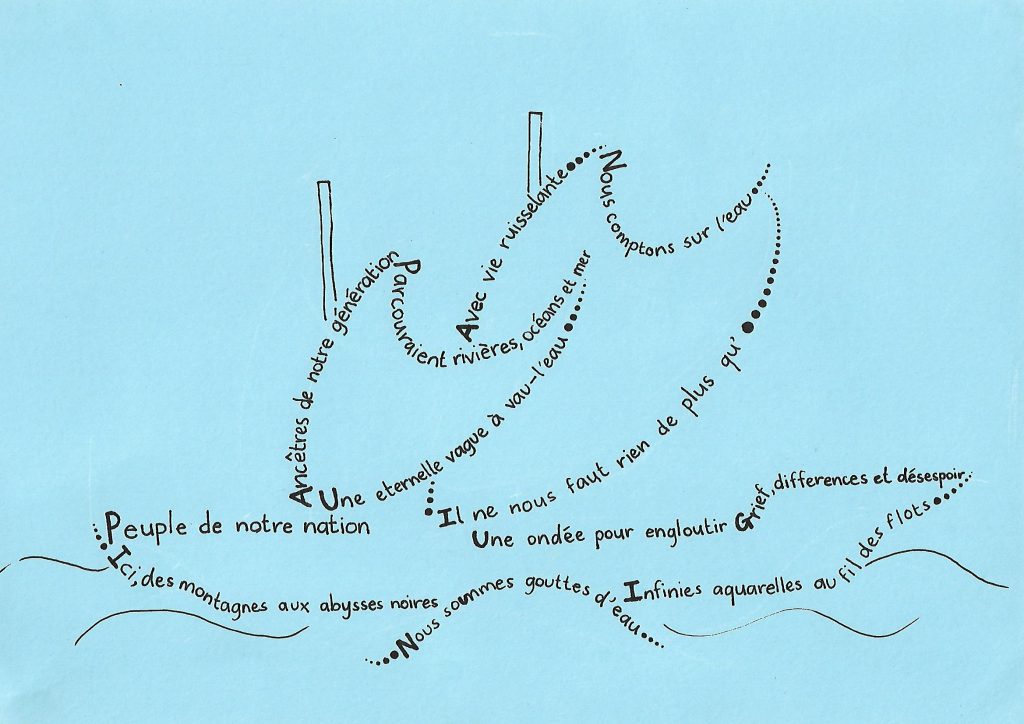 Peuple de notre nation
Ancêtres de notre génération
Parcouraient rivières, océans et mer
Une eternelle vague à vau-l'eau
Avec vie ruisselante
Nous comptons sur l'eau
Il ne nous faut rien de plus qu'
Une ondée pour engloutir
Grief, differences et désespoir
Infinies aquarelles au fil des flots
Nous sommes gouttes d'eau
Ici, des montagnes aux abysses noires